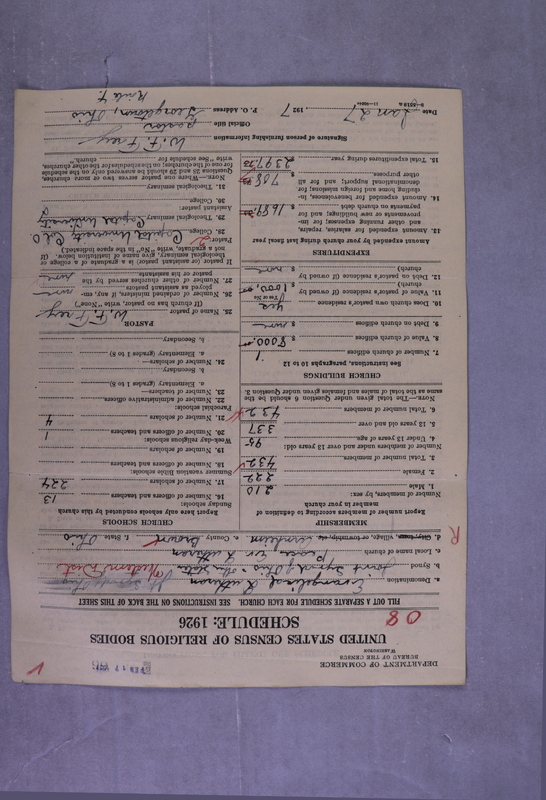 DEPARTMENT OF COMMERCE
BUREAU OF THE CENSUS
WASHINGTON
UNITED STATES CENSUS OF RELIGIOUS BODIES
SCHEDULE: 1926
08
FILL OUT A SEPARATE SCHEDULE FOR EACH CHURCH. SEE INSTRUCTIONS ON THE BACK OF THIS SHEET
a. Denomination Evangelical Lutheran
b. Synod Joint Synod of Ohio Western Dist.
c. Local name of church Ev Lutheran
d. City, town, village, or township e. County Brown f. State Ohio
R
MEMBERSHIP
Report number of members according to definition of
member in your church
Number of members, by sex:
1. Male 210
2. Female 222
3. Total number of members 432
Number of members under and over 13 years old:
4. Under 13 years of age 95
5. 13 years old and over 337
6. Total number of members 432
NOTE.—The total given under Question 6 should be the
same as the total of males and females given under Question 3.
CHURCH BUILDINGS
See instructions, paragraphs 10 to 12
7. Number of church edifices 1
8. Value of church edifices $ 8000.00
9. Debt on church edifices $ none
10. Does church own pastor's residence yes
(Yes or No)
11. Value of pastor's residence (if owned by
church) $ 1000.00
12. Debt on pastor's residence (if owned by
church) $ none
EXPENDITURES
Amount expended by your church during last fiscal year
13. Amount expended for salaries, repairs,
and other running expenses; for im-
provements or new buildings; and for
payments on church debt $
14. Amount expended for benevolences, in-
cluding home and foreign missions; for
denominational support; and for all
other purposes $
15. Total expenditures during year $
CHURCH SCHOOLS
Report here only schools conducted by this church
Sunday schools:
16. Number of officers and teachers 13
17. Number of scholars 224
Summer vacation Bible schools:
18. Number of officers and teachers
19. Number of scholars
Week-day religious schools:
20. Number of officers and teachers 1
21. Number of scholars 4
Parochial schools:
22. Number of administrative officers
23. Number of teachers
a. Elementary (grades 1 to 8)
b. Secondary
24. Number of scholars—
a. Elementary (grades 1 to 8)
b. Secondary
PASTOR
25. Name of pastor W. F. Frey
(If church has no pastor, write "None")
26. Number of ordained ministers, if any, em-
ployed as assistant pastors none
27. Number of other churches served by the
pastor or his assistants none
If pastor (or assistant pastor) is a graduate of a college or
theological seminary, give name of institution below. (If
not a graduate, write "No" in the space indicated.)
Pastor:
28. College Capital University Col O
29. Theological seminary Capital University
Assistant pastor:
30. College
31. Theological seminary
NOTE.—Where one pastor serves two or more churches,
Questions 28 and 29 should be answered only on the schedule
for one of the churches; on the schedules for the other churches,
write "See schedule for church."
Signature of person furnishing information W. F. Frey
Official title pastor
P. O. Address Georgetown, Ohio
Route 7.
Date Jan 27, 1927